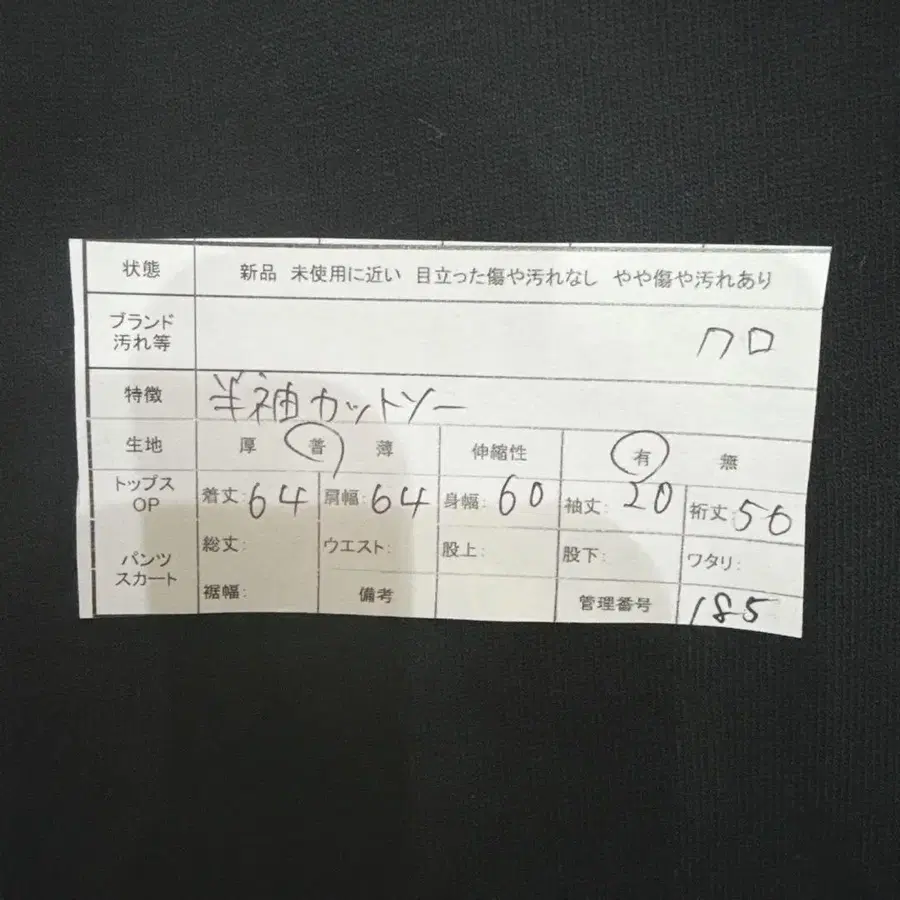 状態 新品 未使用に近い 目立った傷や汚れなし やや傷や汚れあり
ブランド
汚れ等 クロ
特徴 半袖カットソー
生地 厚 普 薄 伸縮性 有 無
トップス
OP 着丈:64 肩幅:64 身幅:60 袖丈:20 裄丈:50
パンツ
スカート 総丈: ウエスト: 股上: 股下: ワタリ:
裾幅: 備考 管理番号 185